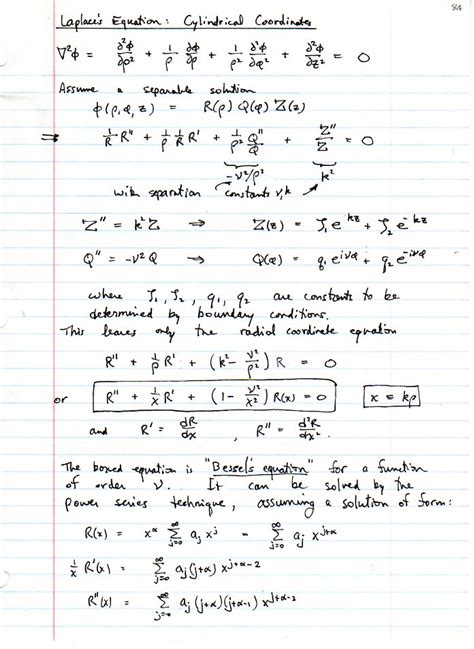 84
Laplace's Equation: Cylindrical Coordinates
∇²ϕ = ∂²ϕ/∂ρ² + 1/ρ ∂ϕ/∂ρ + 1/ρ² ∂²ϕ/∂φ² + ∂²ϕ/∂z² = 0
Assume a separable solution
ϕ(ρ,φ,z) = R(ρ) Q(φ) Z(z)
⇒ 1/R R" + 1/ρ 1/R R' + 1/ρ² Q"/Q + Z"/Z = 0
-ν²/ρ² k²
with separation constants ν, k
Z" = k²Z ⇒ Z(z) = ζ₁e^{kz} + ζ₂e^{-kz}
Q" = -ν²Q → Q(φ) = q₁e^{iνφ} + q₂e^{-iνφ}
where ζ₁, ζ₂, q₁, q₂ are constants to be
determined by boundary conditions.
This leaves only the radial coordinate equation
R" + 1/ρ R' + (k² - ν²/ρ²) R = 0
or R" + 1/x R' + (1 - ν²/x²) R(x) = 0 x = kρ
and R' = dR/dx, R" = d²R/dx².
The boxed equation is "Bessel's equation" for a function
of order ν. It can be solved by the
power series technique, assuming a solution of form:
R(x) = x^α ∑_{j=0}^∞ a_j x^j = ∑_{j=0}^∞ a_j x^{j+α}
1/x R'(x) = ∑_{j=0}^∞ a_j(j+α) x^{j+α-2}
R"(x) = ∑_{j=0}^∞ a_j(j+α)(j+α-1) x^{j+α-2}